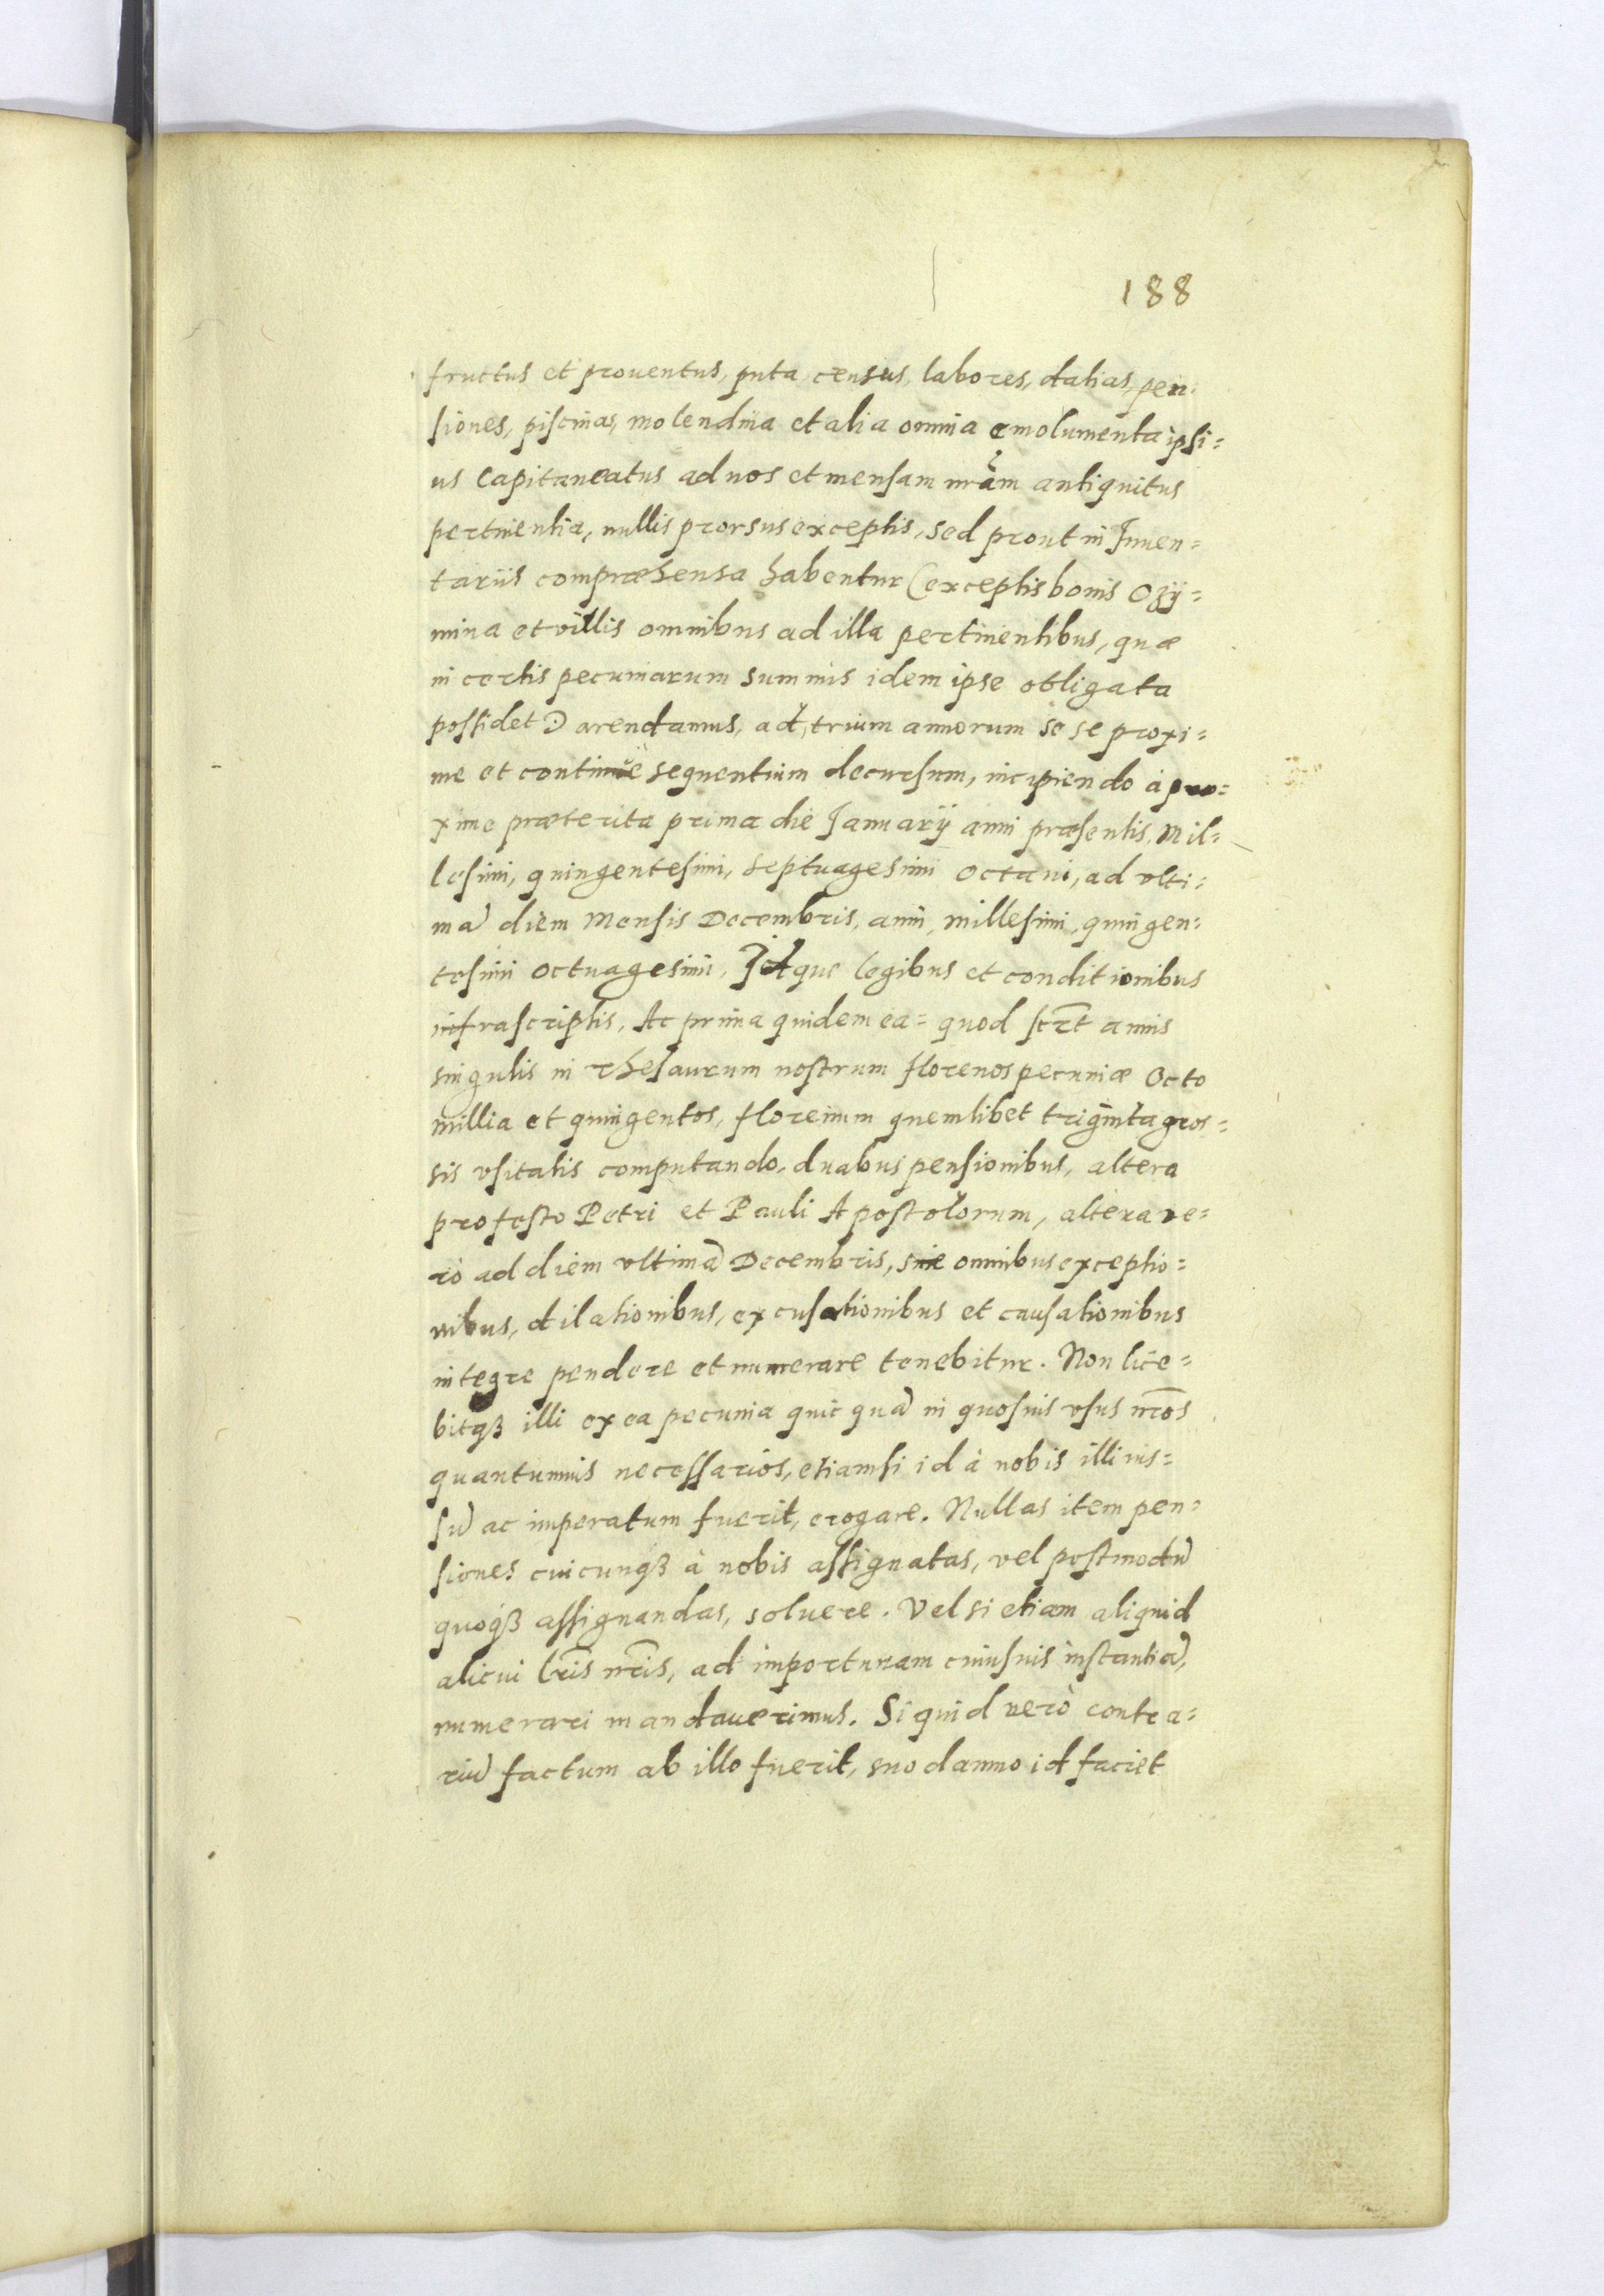 188
fructus et prouentus, puta census, labores, datias, pen-
siones, piscinas, molendina et alia omnia emolumenta ipsi=
us Capitaneatus ad nos et mensam nr̃am antiquitus
pertinentia, nullis prorsus exceptis, sed prout in Inuen=
tariis compræhensa habentur (exceptis bonis Ozÿ=
mina et villis omnibus ad illa pertinentibus, quæ
in certis pecuniarum summis idem ipse obligata
possidet) arendamus, ad trium annorum se se proxi=
me et continuè sequentium decursum, incipiendo à pro=
xime præterita prima die Januarÿ anni præsentis, Mil=
lesimi, quingentesimi, septuagesimi octaui, ad vlti=
mã diem Mensis Decembris, anni, millesimi, quingen=
tesimi octuagesimi, Idque legibus et conditionibus
infrascriptis, Ac prima quidem ea= quod scr̃t annis
singulis in thesaurum nostrum florenos pecuniæ Octo
millia et quingentos, florenum quemlibet triginta gros=
sis vsitatis computando, duabus pensionibus, altera
pro festo Petri et Pauli Apostolorum, altera ve=
rò ad diem vltimã Decembris, sine omnibus exceptio=
nibus, dilationibus, excusationibus et causationibus
integre pendere et numerare tenebitur. Non lice=
bitqꝫ illi ex ea pecunia quicquã in quosuis vsus nr̃os
quantumuis necessarios, etiamsi id à nobis illi ius=
sũ ac imperatum fuerit, erogare. Nullas item pen=
siones cuicunqꝫ à nobis assignatas, vel postmodũ
quoqꝫ assignandas, soluere. Vel si etiam aliquid
alicui lr̃is nr̃is, ad importunam cuiusuis instantiã,
numerari mandauerimus. Si quid verò contra=
riũ factum ab illo fuerit, suo damno id faciet